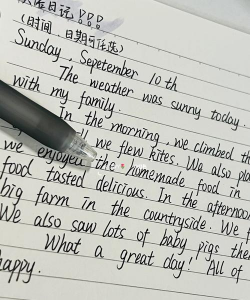 日记!!!
(时间、日期可任选)
Sunday, Sepetember 10th
The weather was sunny today.
with my family.
In the morning, we climbed th
we flew kites. We also pla
we enjoyed the homemade food in
food tasted delicious. In the afternoo
big farm in the countryside. We f
We also saw lots of baby pigs ther
What a great day! All of
happy.